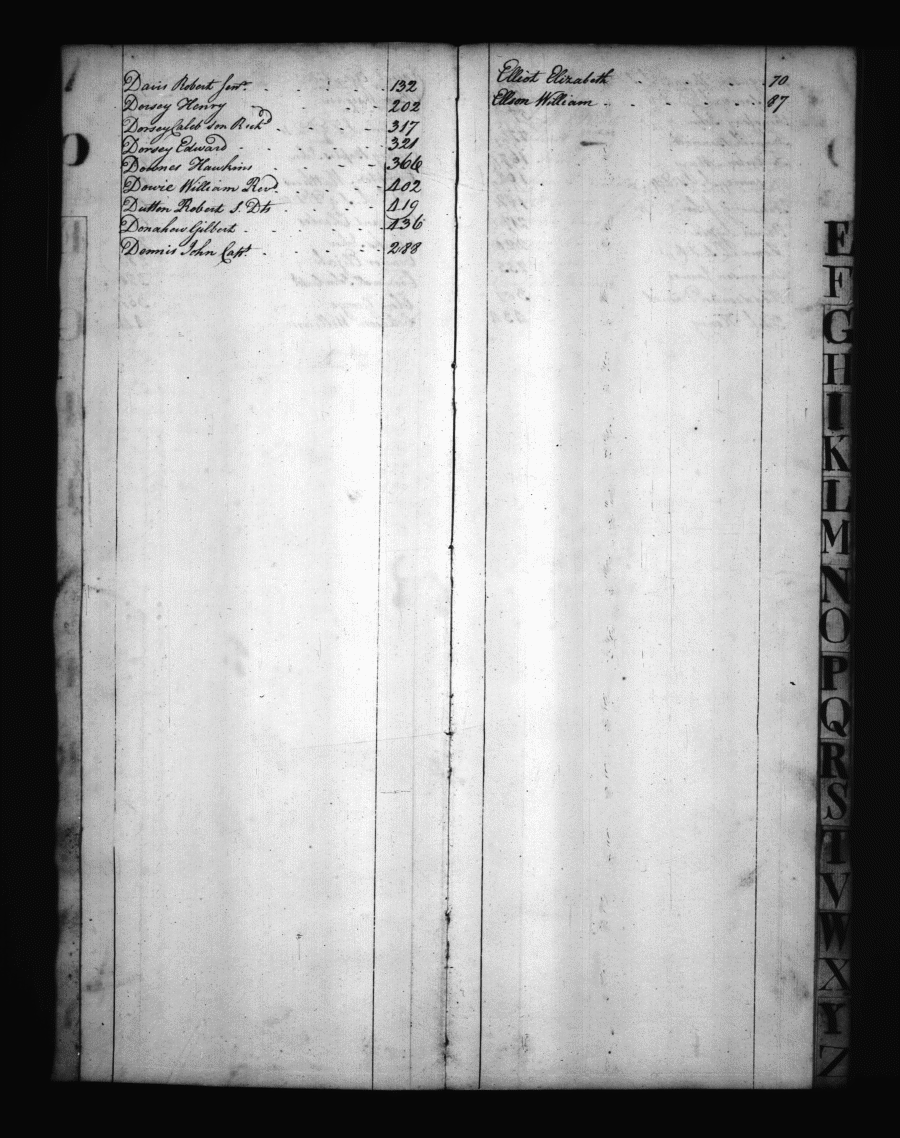 D
Davis Robert Senr. 132
Dorsey Henry 202
Dorsey Caleb Son Richd 317
Dorsey Edward 321
Downes Hawkins 366
Dowie William Revd. 402
Dutton Robert S. Dts 419
Donahow Gilbert 436
Dennis John Capt. 288
Elliot Elizabeth 70
Ellson William 87
E
F
G
H
I
K
L
M
N
O
P
Q
R
S
T
V
W
X
Y
Z